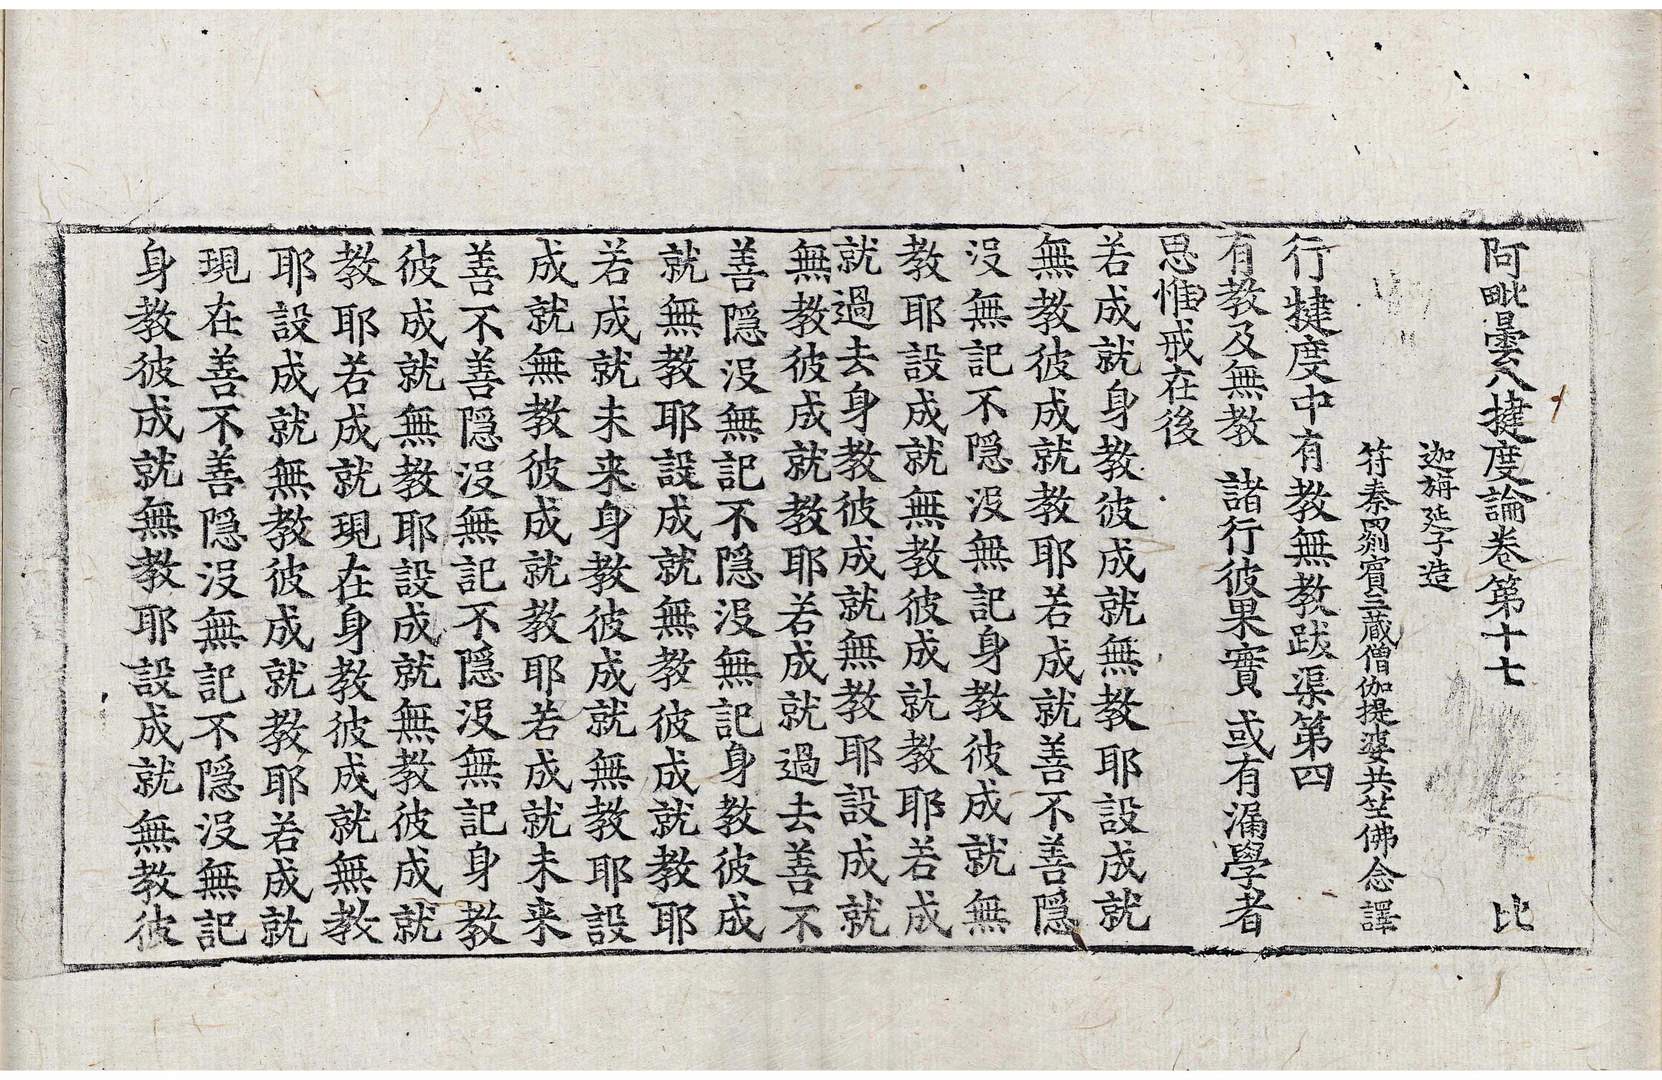 阿毗曇八揵度論卷第十七 比
迦旃延子造
符秦罽賓三藏僧伽提婆共竺佛念譯
行揵度中有教無教跋渠第四
有教及無教 諸行彼果實 或有漏學者
思惟戒在後
若成就身教彼成就無教耶設成就
無教彼成就教耶若成就善不善隱
沒無記不隱沒無記身教彼成就無
教耶設成就無教彼成就教耶若成
就過去身教彼成就無教耶設成就
無教彼成就教耶若成就過去善不
善隱沒無記不隱沒無記身教彼成
就無教耶設成就無教彼成就教耶
若成就未来身教彼成就無教耶設
成就無教彼成就教耶若成就未来
善不善隱沒無記不隱沒無記身教
彼成就無教耶設成就無教彼成就
教耶若成就現在身教彼成就無教
耶設成就無教彼成就教耶若成就
現在善不善隱沒無記不隱沒無記
身教彼成就無教耶設成就無教彼